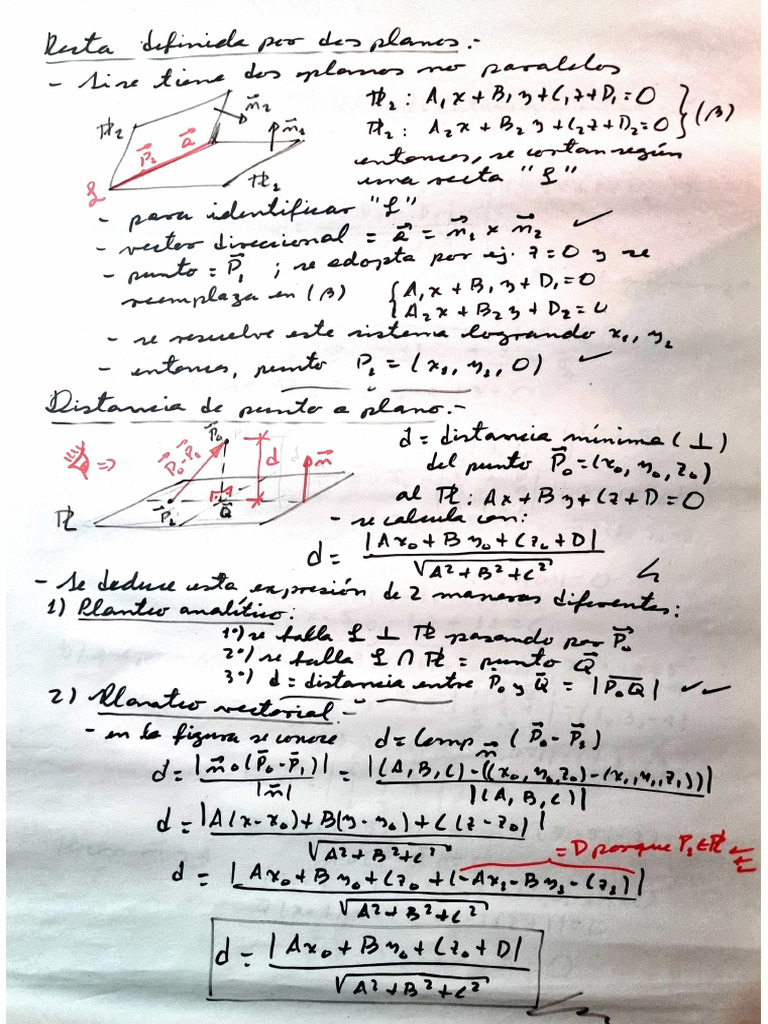 Recta definida por dos planos.-
- Si se tiene dos planos no paralelos
π₂ n⃗₂ n⃗₁ P⃗₁ a⃗ π₁ L
π₁: A₁x + B₁y + C₁z + D₁ = 0
π₂: A₂x + B₂y + C₂z + D₂ = 0 } (β)
entonces, se cortan según
una recta "L"
- para identificar "L"
- vector direccional = a⃗ = n⃗₁ × n⃗₂ ✓
- punto = P⃗₁ ; se adopta por ej. z = 0 y se
reemplaza en (β) { A₁x + B₁y + D₁ = 0
A₂x + B₂y + D₂ = 0
- se resuelve este sistema logrando x₁, y₁
- entonces, punto P₁ = (x₁, y₁, 0) ✓
Distancia de punto a plano.-
P⃗₀ P⃗₀-P⃗₁ d n⃗ P⃗₁ Q⃗ π =>
d = distancia mínima (⊥)
del punto P⃗₀ = (x₀, y₀, z₀)
al π: Ax + By + Cz + D = 0
- se calcula con:
d = |Ax₀ + By₀ + Cz₀ + D| / √(A² + B² + C²)
- Se deduce esta expresión de 2 maneras diferentes:
1) Planteo analítico:
1º) se halla L ⊥ π pasando por P⃗₀
2º) se halla L ∩ π = punto Q⃗
3º) d = distancia entre P⃗₀ y Q⃗ = |P₀Q| ✓✓
2) Planteo vectorial.-
- en la figura se conoce d = Comp n⃗ (P⃗₀ - P⃗₁)
d = |n⃗ ∘ (P⃗₀ - P⃗₁)| / |n⃗| = |(A, B, C) · ((x₀, y₀, z₀) - (x₁, y₁, z₁))| / |(A, B, C)|
d = |A(x - x₀) + B(y - y₀) + C(z - z₀)| / √(A² + B² + C²)
= D porque P₁ ∈ π
d = |Ax₀ + By₀ + Cz₀ + (-Ax₁ - By₁ - Cz₁)| / √(A² + B² + C²)
d = |Ax₀ + By₀ + Cz₀ + D| / √(A² + B² + C²)